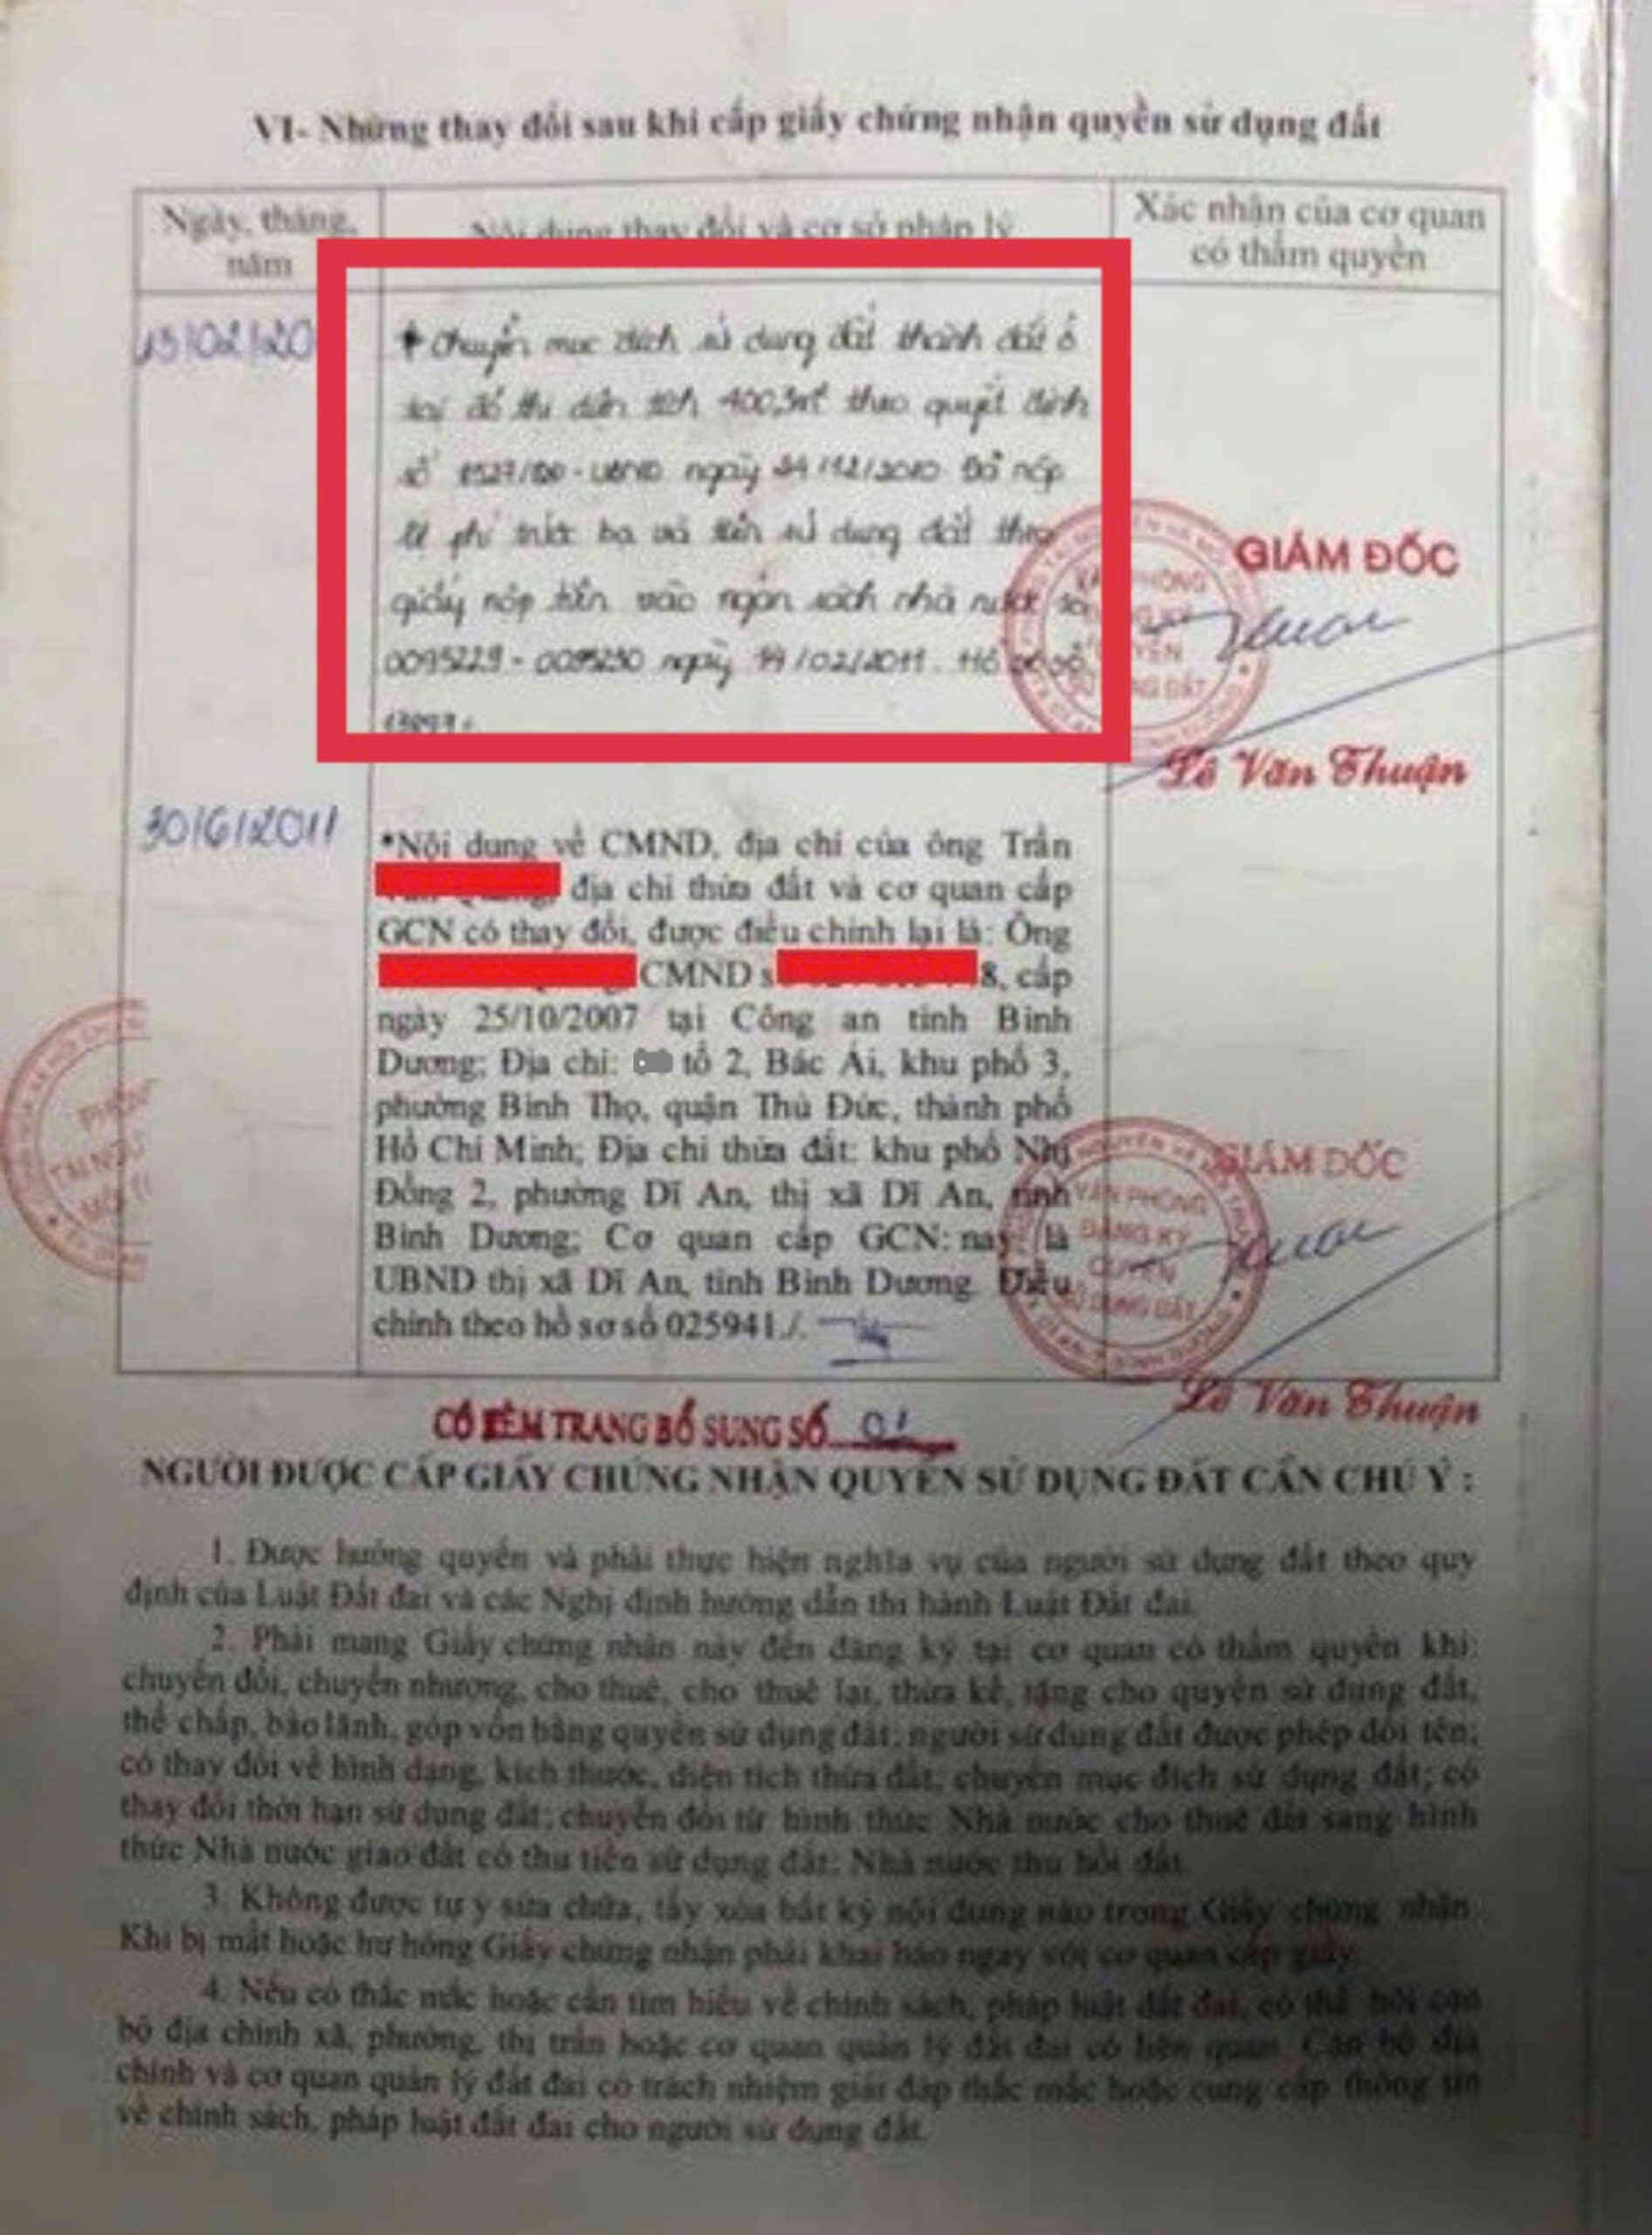 VI- Những thay đổi sau khi cấp giấy chứng nhận quyền sử dụng đất
Ngày, tháng, năm
Nội dung thay đổi và cơ sở pháp lý
Xác nhận của cơ quan có thẩm quyền
15/02/20
+ Chuyển mục đích sử dụng đất thành đất ở
tại đô thị diện tích 400,3m² theo quyết định
số /QĐ-UBND ngày /12/2010 Đã nộp
lệ phí trước bạ và tiền sử dụng đất theo
giấy nộp tiền vào ngân sách nhà nước số
0095229 - ngày /02/2011. Hồ sơ số
GIÁM ĐỐC
Lê Văn Thuận
30/6/2011
*Nội dung về CMND, địa chỉ của ông Trần
địa chỉ thửa đất và cơ quan cấp
GCN có thay đổi, được điều chỉnh lại là: Ông
CMND s 8, cấp
ngày 25/10/2007 tại Công an tỉnh Bình
Dương; Địa chỉ: tổ 2, Bác Ái, khu phố 3,
phường Bình Thọ, quận Thủ Đức, thành phố
Hồ Chí Minh; Địa chỉ thửa đất: khu phố Nhị
Đồng 2, phường Dĩ An, thị xã Dĩ An, tỉnh
Bình Dương; Cơ quan cấp GCN: nay là
UBND thị xã Dĩ An, tỉnh Bình Dương. Điều
chỉnh theo hồ sơ số 025941./.
VĂN PHÒNG
ĐĂNG KÝ
QUYỀN
SỬ DỤNG ĐẤT
GIÁM ĐỐC
Lê Văn Thuận
CÓ KÈM TRANG BỔ SUNG SỐ 01
NGƯỜI ĐƯỢC CẤP GIẤY CHỨNG NHẬN QUYỀN SỬ DỤNG ĐẤT CẦN CHÚ Ý :
1. Được hưởng quyền và phải thực hiện nghĩa vụ của người sử dụng đất theo quy
định của Luật Đất đai và các Nghị định hướng dẫn thi hành Luật Đất đai.
2. Phải mang Giấy chứng nhận này đến đăng ký tại cơ quan có thẩm quyền khi:
chuyển đổi, chuyển nhượng, cho thuê, cho thuê lại, thừa kế, tặng cho quyền sử dụng đất,
thế chấp, bảo lãnh, góp vốn bằng quyền sử dụng đất; người sử dụng đất được phép đổi tên;
có thay đổi về hình dạng, kích thước, diện tích thửa đất; chuyển mục đích sử dụng đất; có
thay đổi thời hạn sử dụng đất; chuyển đổi từ hình thức Nhà nước cho thuê đất sang hình
thức Nhà nước giao đất có thu tiền sử dụng đất; Nhà nước thu hồi đất.
3. Không được tự ý sửa chữa, tẩy xóa bất kỳ nội dung nào trong Giấy chứng nhận.
Khi bị mất hoặc hư hỏng Giấy chứng nhận phải khai báo ngay với cơ quan cấp giấy.
4. Nếu có thắc mắc hoặc cần tìm hiểu về chính sách, pháp luật đất đai, có thể hỏi cán
bộ địa chính xã, phường, thị trấn hoặc cơ quan quản lý đất đai có liên quan. Cán bộ địa
chính và cơ quan quản lý đất đai có trách nhiệm giải đáp thắc mắc hoặc cung cấp thông tin
về chính sách, pháp luật đất đai cho người sử dụng đất.